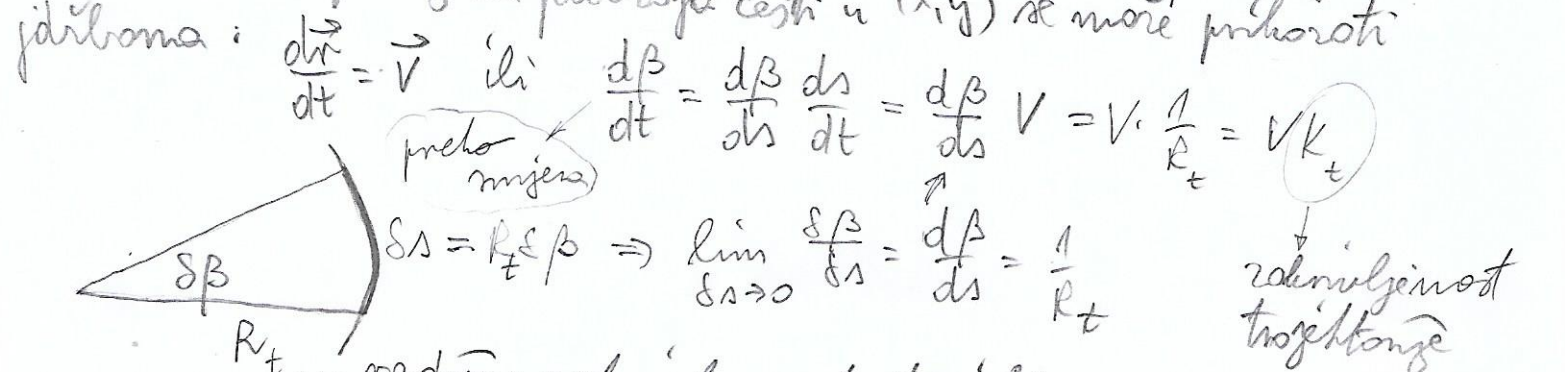 česti u (x,y) se može prikazati
jdžbama : $\frac{d\vec{r}}{dt} = \vec{V}$ ili $\frac{d\beta}{dt} = \frac{d\beta}{ds} \frac{ds}{dt} = \frac{d\beta}{ds} V = V \cdot \frac{1}{R_t} = V K_t$
preko smjera
$\delta s = R_t \delta\beta \Rightarrow \lim_{\delta s \to 0} \frac{\delta\beta}{\delta s} = \frac{d\beta}{ds} = \frac{1}{R_t}$
zakrivljenost
trajektorije
$\delta\beta$
$R_t$